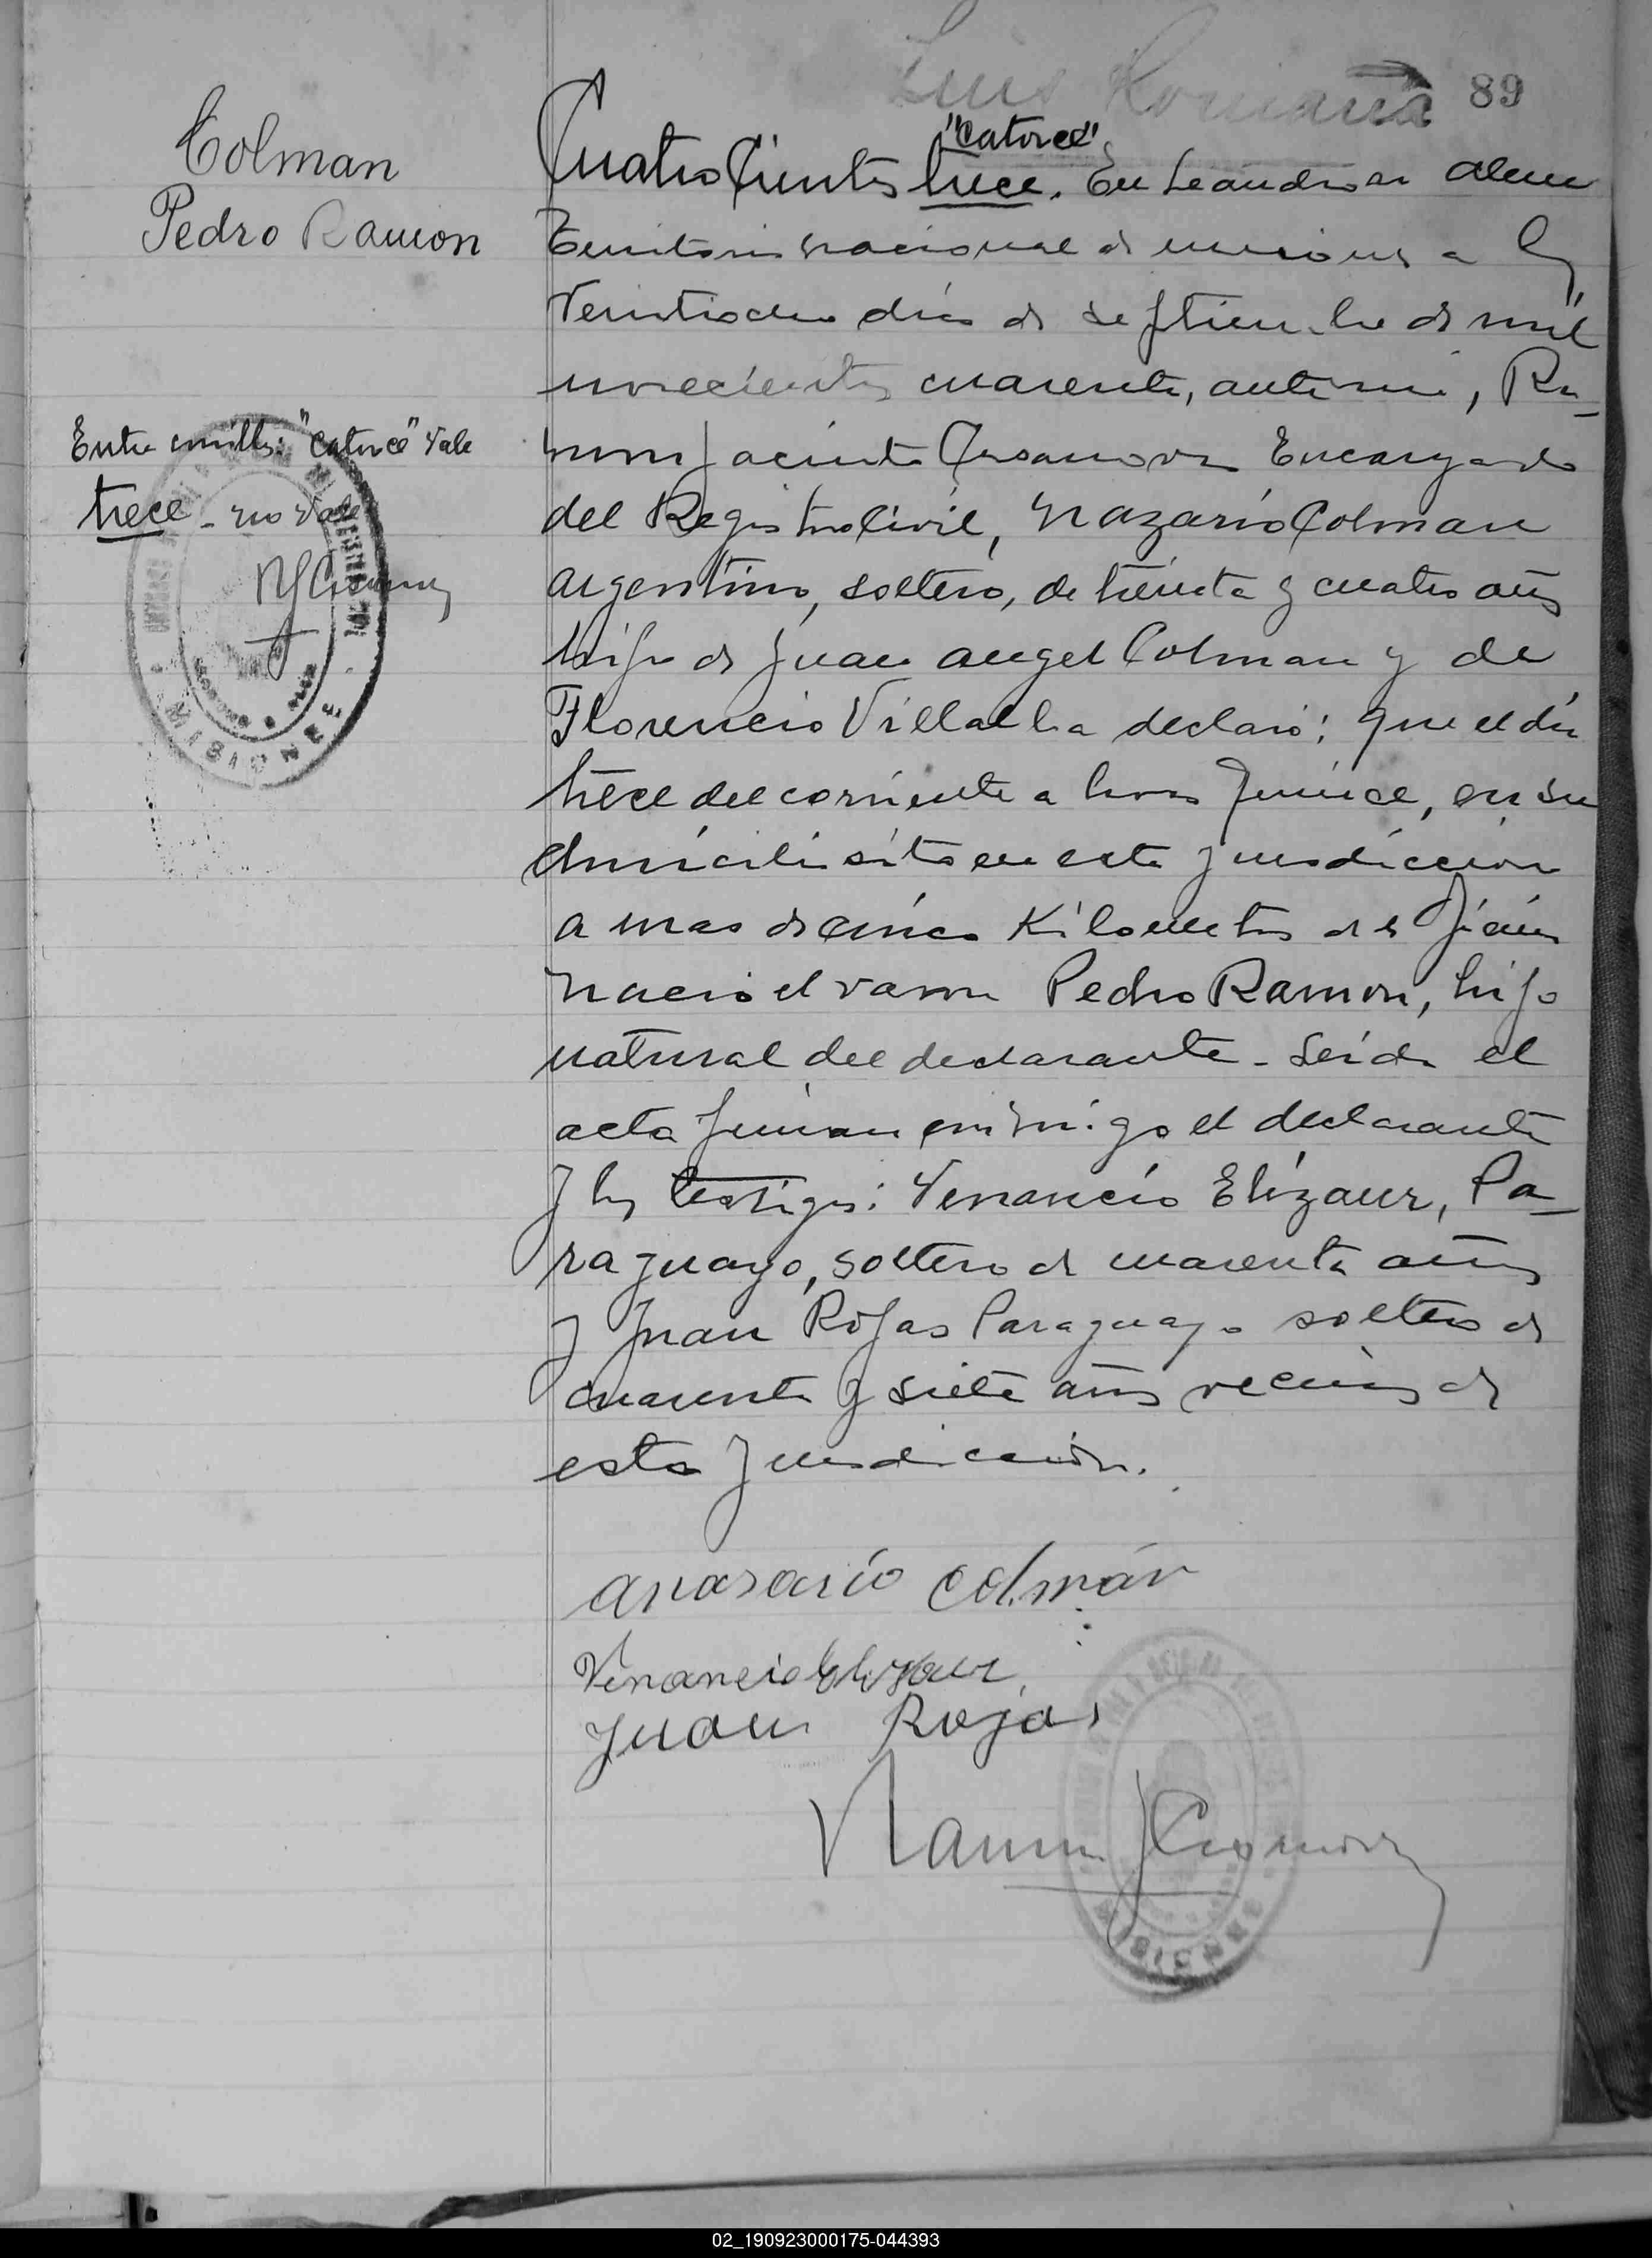 Luis Romana
89
Colman
Pedro Ramon
"Catorce"
Cuatro Cientos trece. En Leandro N Alem
Territorio nacional de misiones a los
Veintiocho días de septiembre de mil
novecientos cuarenta, ante mi, Ra-
mon Jacinto Casanova Encargado
del Registro Civil, Nazario Colman
argentino, soltero, de treinta y cuatro años
hijo de Juan angel Colman y de
Florencio Villalba declaró: que el día
trece del corriente a horas quince, en su
domicilio sito en esta jurisdiccion
a mas de cinco Kilometros de
nacio el varon Pedro Ramon, hijo
natural del declarante - Leida el
acta firman conmigo el declarante
y los testigos: Venancio Elizaur, Pa-
raguayo, soltero de cuarenta años
y Juan Rojas Paraguayo soltero de
cuarenta y siete años vecinos de
esta jurisdiccion.
Entre "catorce" Vale
trece - no vale
MISIONES
anasario colmán
Venancio Elizaur
Juan Rojas
Ramon J Casanova
MISIONES
02_190923000175-044393